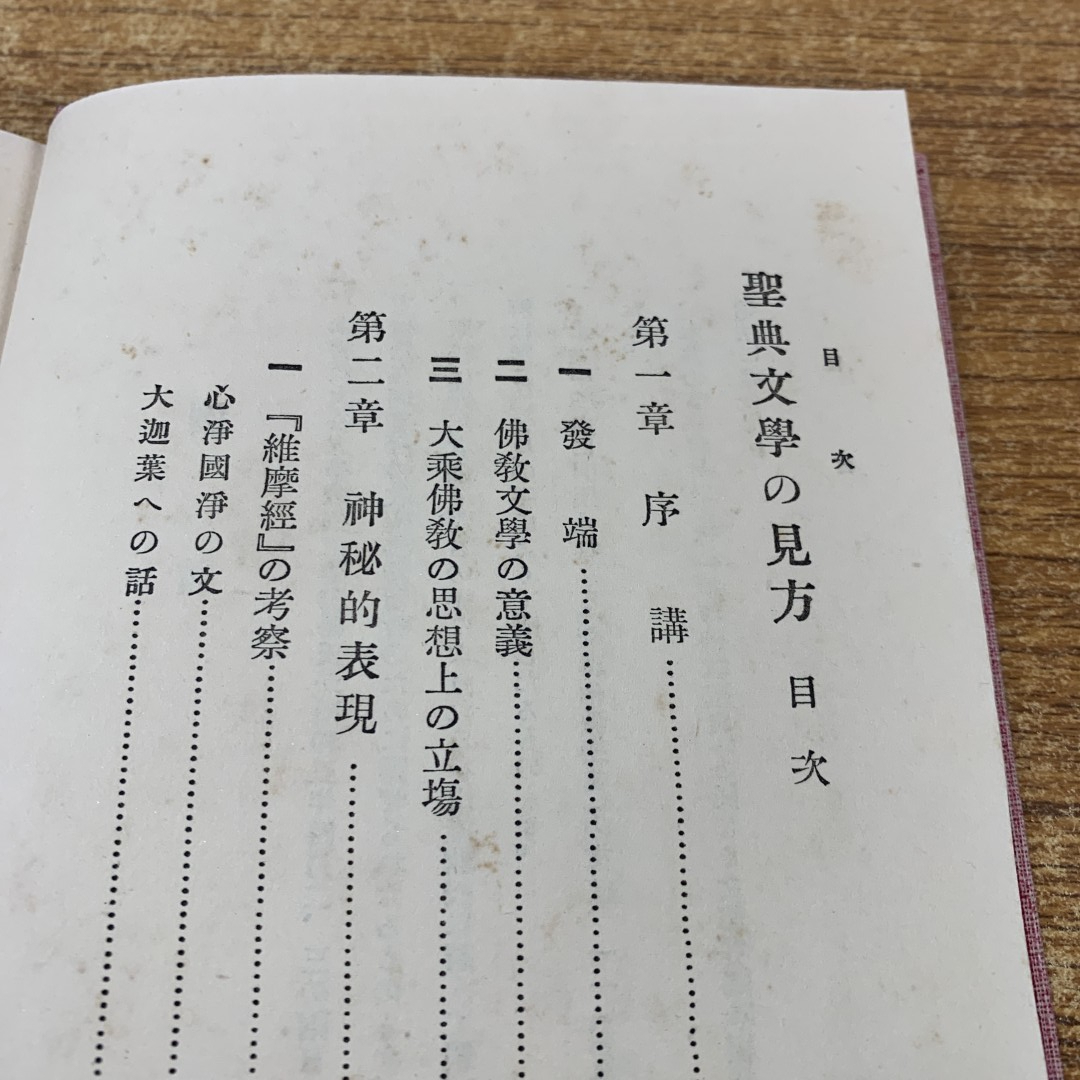 目次
聖典文學の見方 目次
第一章 序講
一 發端
二 佛敎文學の意義
三 大乘佛敎の思想上の立塲
第二章 神秘的表現
一 『維摩經』の考察
心淨國淨の文
大迦葉への話